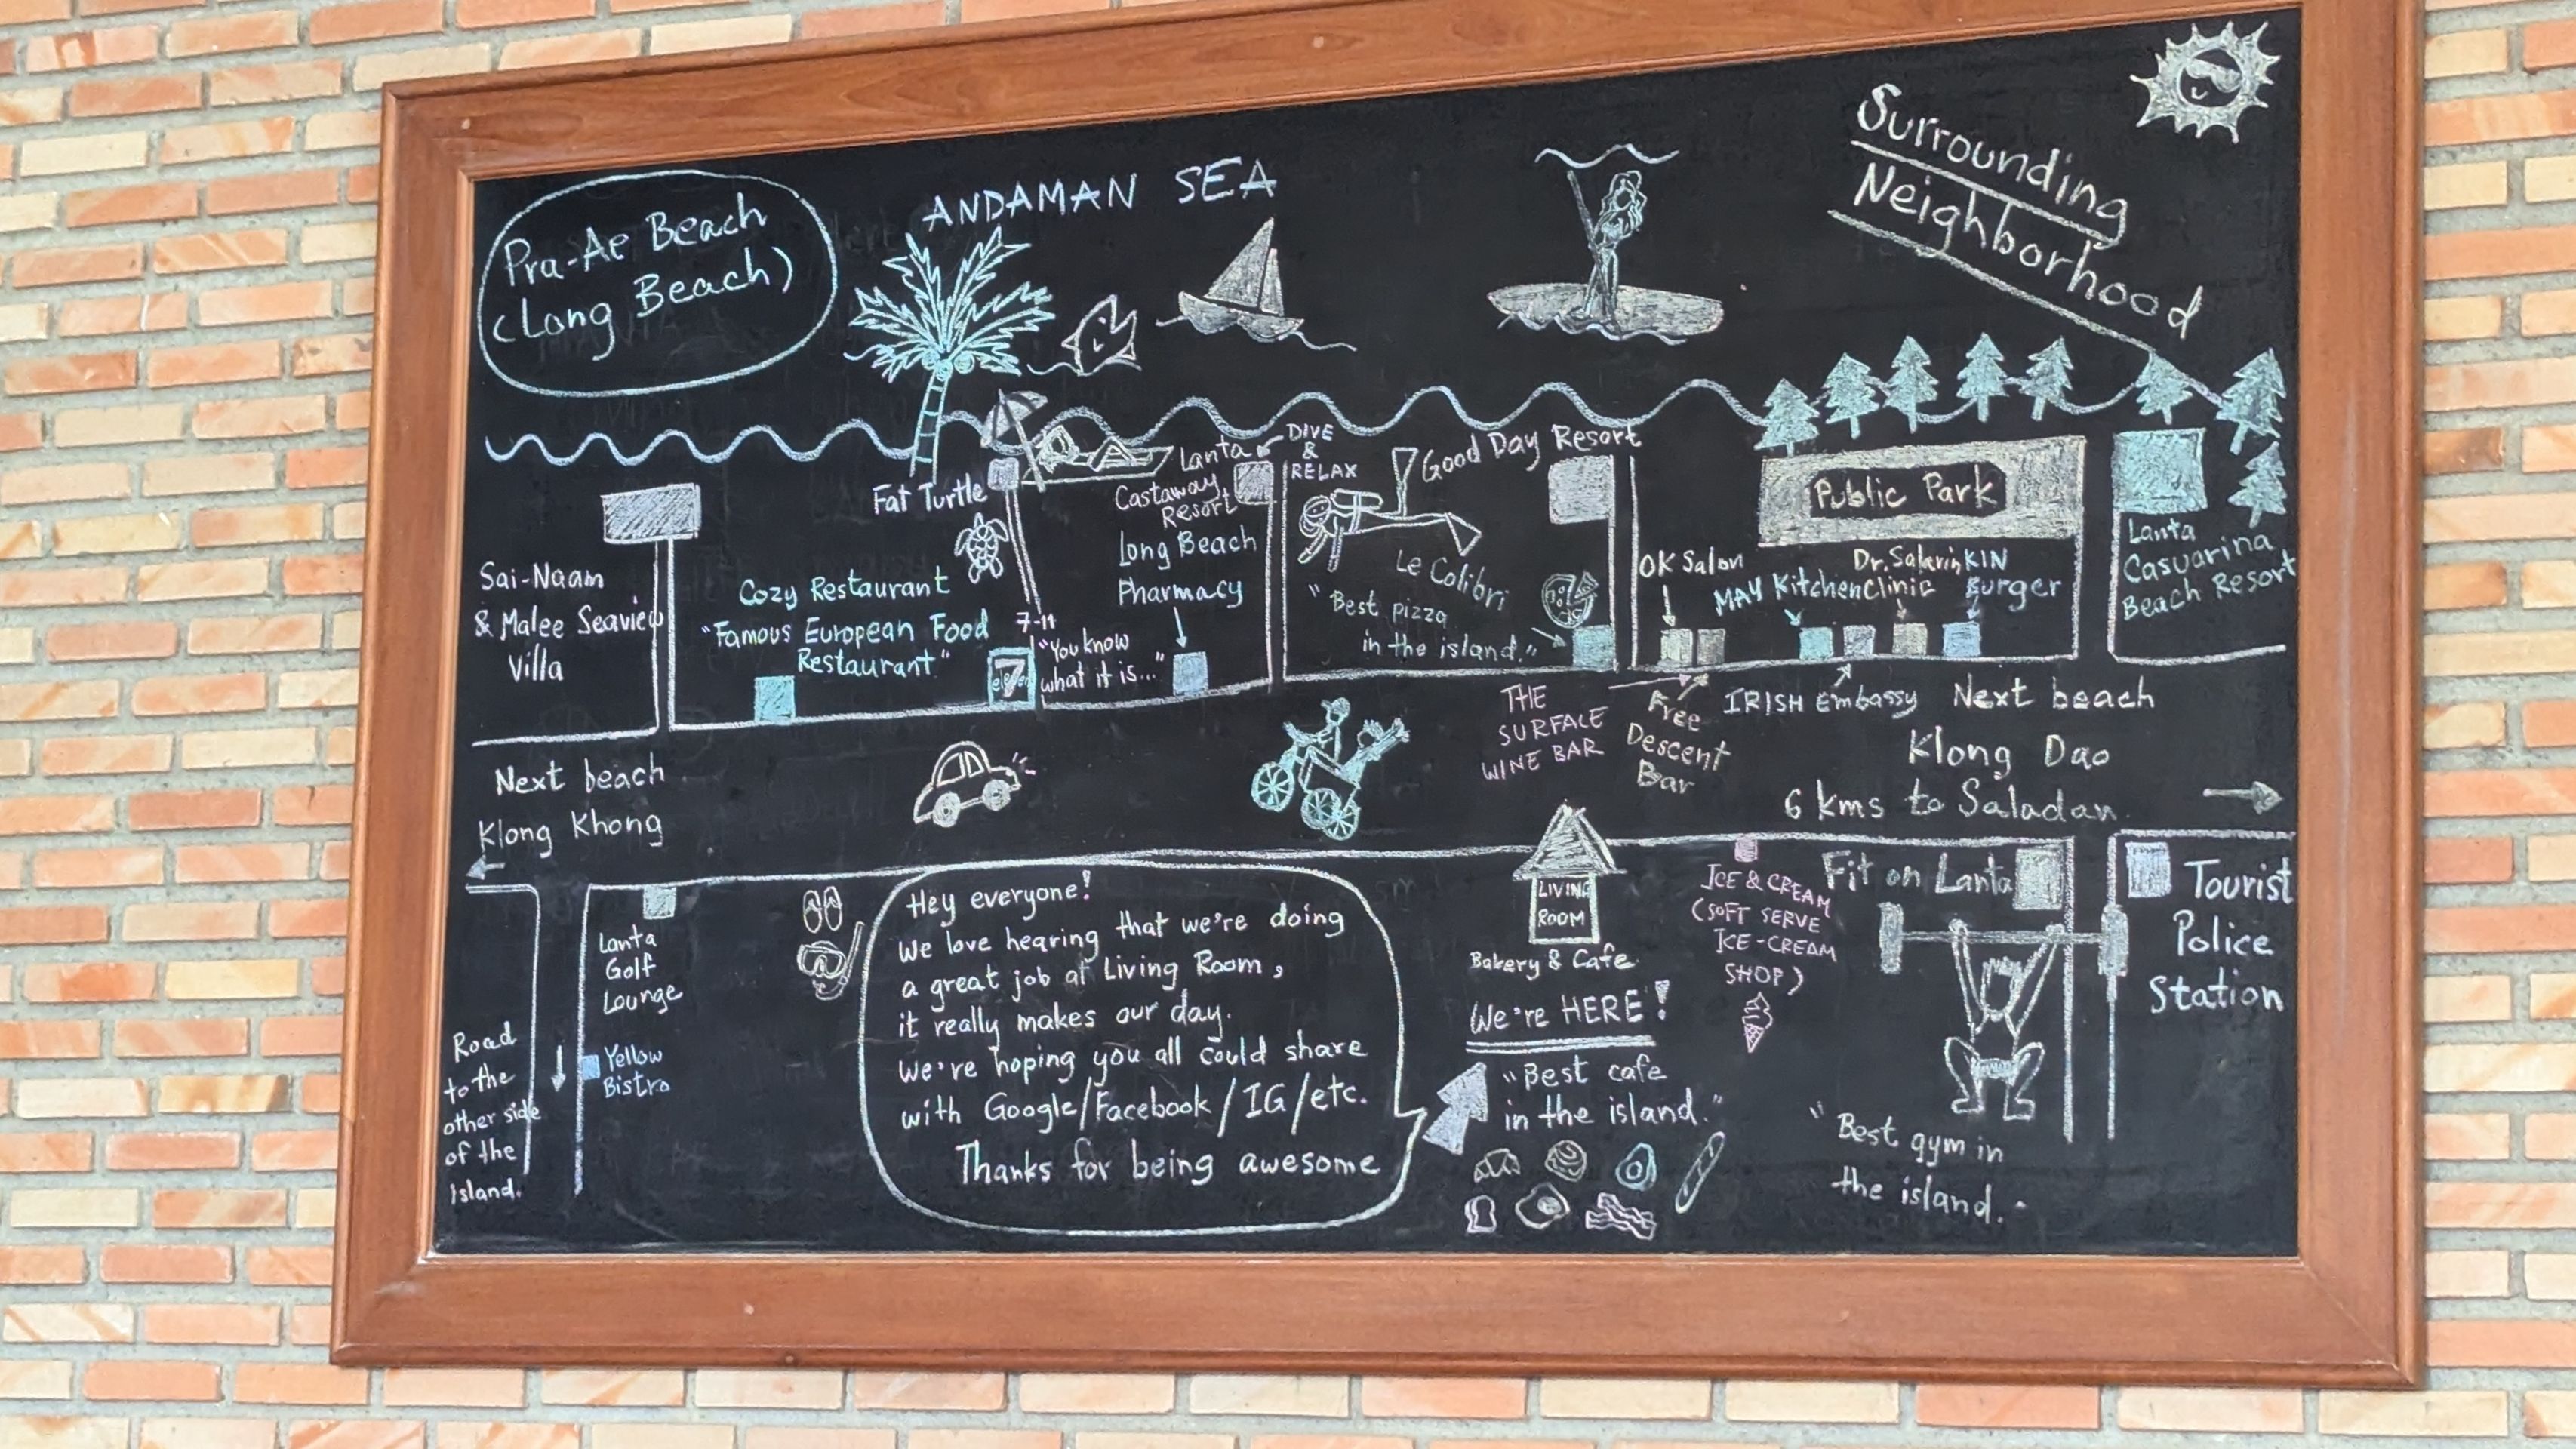 Surrounding
Neighborhood
Pra-Ae Beach
(Long Beach)
ANDAMAN SEA
Sai-Naam
& Malee Seaview
Villa
Fat Turtle
Cozy Restaurant
"Famous European Food
Restaurant"
7-11
7
eleven
"You know
what it is..."
Lanta
Castaway
Resort
DIVE
&
RELAX
Long Beach
Pharmacy
Good Day Resort
Le Colibri
"Best pizza
in the island."
OK Salon
MAY Kitchen
Public Park
Dr. Salarin
Clinic
KIN
Burger
Lanta
Casuarina
Beach Resort
THE
SURFACE
WINE BAR
Free
Descent
Bar
IRISH Embassy
Next beach
Klong Dao
6 kms to Saladan.
Next beach
Klong Khong
Road
to the
other side
of the
island.
Lanta
Golf
Lounge
Yellow
Bistro
Hey everyone!
We love hearing that we're doing
a great job at Living Room,
it really makes our day.
We're hoping you all could share
with Google/Facebook/IG/etc.
Thanks for being awesome
LIVING
ROOM
Bakery & Cafe.
We're HERE!
"Best cafe
in the island."
ICE & CREAM
(SOFT SERVE
ICE-CREAM
SHOP)
Fit on Lanta
"Best gym in
the island."
Tourist
Police
Station